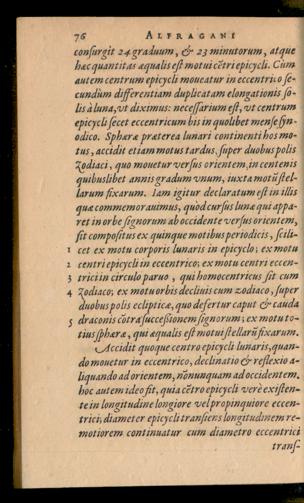 76 ALFRAGANI
consurgit 24 graduum, & 23 minutorum, atque
hæc quantitas æqualis est motui cētri epicycli. Cùm
autem centrum epicycli moueatur in eccentrico se-
cundùm differentiam duplicatam elongationis so-
lis à luna, vt diximus: necessarium est, vt centrum
epicycli secet eccentricum bis in quolibet mense syn-
odico. Sphæræ præterea lunari continenti hos mo-
tus, accidit etiam motus tardus, super duobus polis
Zodiaci, quo mouetur versus orientem, in centenis
quibuslibet annis gradum vnum, iuxta motū stel-
larum fixarum. Iam igitur declaratum est in illis
quæ commemorauimus, quòd cursus lunæ qui appa-
ret in orbe signorum ab occidente versus orientem,
sit compositus ex quinque motibus periodicis, scili-
1 cet ex motu corporis lunaris in epicyclo; ex motu
2 centri epicycli in eccentrico; ex motu centri eccen-
3 trici in circulo paruo, qui homocentricus sit cum
4 Zodiaco; ex motu orbis decliuis cum zodiaco, super
duobus polis eclipticæ, quo defertur caput & cauda
5 draconis cōtra successionem signorum; ex motu to-
tius sphæræ, qui æqualis est motui stellarū fixarum.
Accidit quoque centro epicycli lunaris, quan-
do mouetur in eccentrico, declinatio & reflexio a-
liquando ad orientem, nōnunquam ad occidentem.
hoc autem ideo fit, quia cētro epicycli verè existen-
te in longitudine longiore vel propinquiore eccen-
trici, diameter epicycli transiens longitudinem re-
motiorem continuatur cum diametro eccentrici
trans-